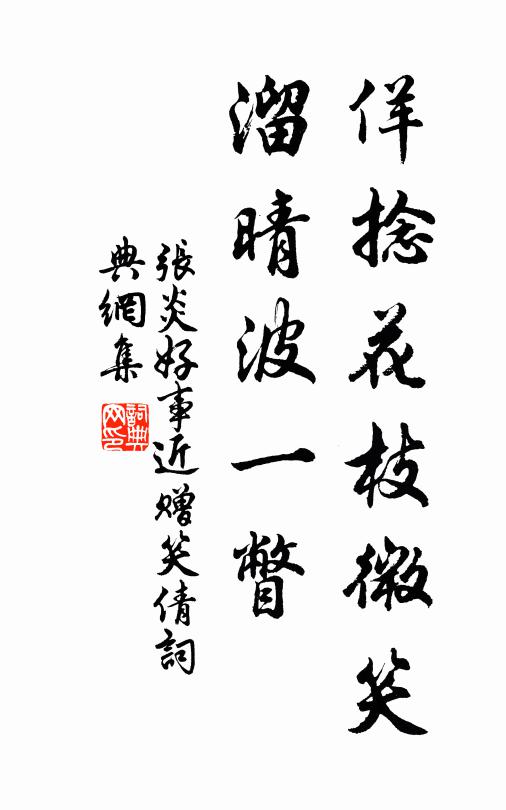 佯捻花枝微笑
溜晴波一瞥
張炎好事近贈笑倩詞
典網集
詞典网印